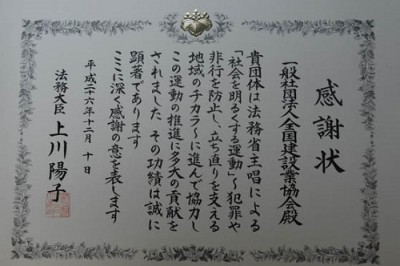 感謝状
一般社団法人全国建設業協会殿
貴団体は法務省主唱による
「社会を明るくする運動」~犯罪や
非行を防止し、立ち直りを支える
地域のチカラ~に進んで協力し
この運動の推進に多大の貢献を
されました その功績は誠に
顕著であります
ここに深く感謝の意を表します
平成二十六年十二月 十日
法務大臣 上川陽子